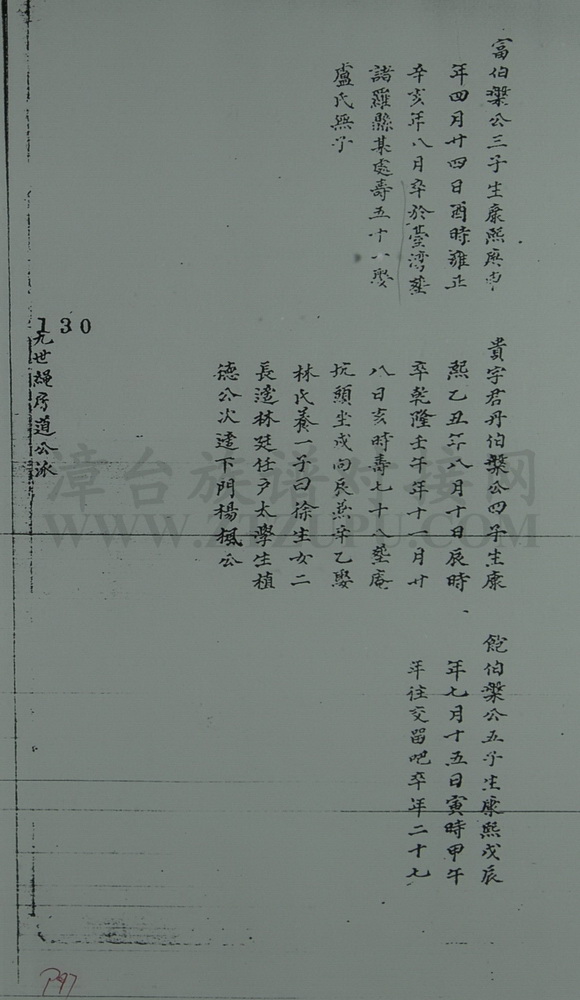 富伯槃公三子生康熙庚申
年四月廿四日酉時雍正
辛亥年八月卒於臺灣塟
諸羅縣某處壽五十八娶
盧氏無子
貴字君丹伯槃公四子生康
熙乙丑年八月十日辰時
卒乾隆壬午年十一月廿
八日亥時壽七十八塟庵
坑頭坐戌向辰兼辛乙娶
林氏養一子曰徐生女二
長適林廷任户太學生植
德公次適下門楊楓公
飽伯槃公五子生康熙戊辰
年七月十五日寅時甲午
年往交留吧卒年二十七
130
九世繩房道公派
漳台族谱对接网
WWW.ZTZUPU.COM
P97